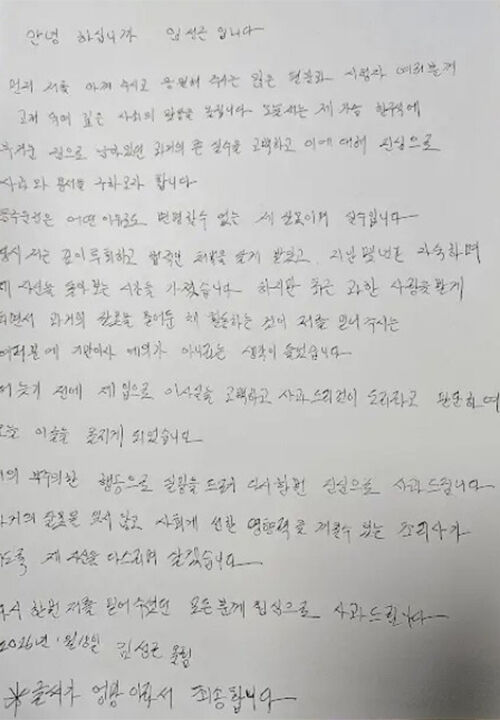 안녕 하십니까 임성근 입니다
먼저 저를 아껴 주시고 응원해 주시는 많은 팬분과 시청자 여러분께
고개 숙여 깊은 사죄의 말씀을 올립니다 오늘 저는 제 가슴 한구석에
무거운 짐으로 남아있던 과거의 큰 실수를 고백하고 이에 대해 진심으로
사과와 용서를 구하고자 합니다
음주운전은 어떤 이유로도 변명할수 없는 제 잘못이며 실수입니다
당시 저는 깊이 뉘우치고 법적인 처벌을 달게 받았고, 지난 몇년간 자숙하며
제 자신을 돌아보는 시간을 가졌습니다 하지만 최근 과한 사랑을 받게
되면서 과거의 잘못을 묻어둔 채 활동하는 것이 저를 믿어주시는
여러분에 기만이자 예의가 아니라는 생각이 들었습니다
더 늦기 전에 제 입으로 이사실을 고백하고 사과드리는것이 도리라고 판단하여
오늘 이글을 올리게 되었습니다
저의 부주의한 행동으로 실망을 드려 다시한번 진심으로 사과드립니다
과거의 잘못을 잊지 않고 사회에 선한 영향력을 끼칠수 있는 조리사가
되도록 제 자신을 다스리며 살겠습니다
다시 한번 저를 믿어주셨던 모든분께 진심으로 사과드립니다
2026년 1월 임성근 올림
※글씨가 엉망 이라서 죄송합니다